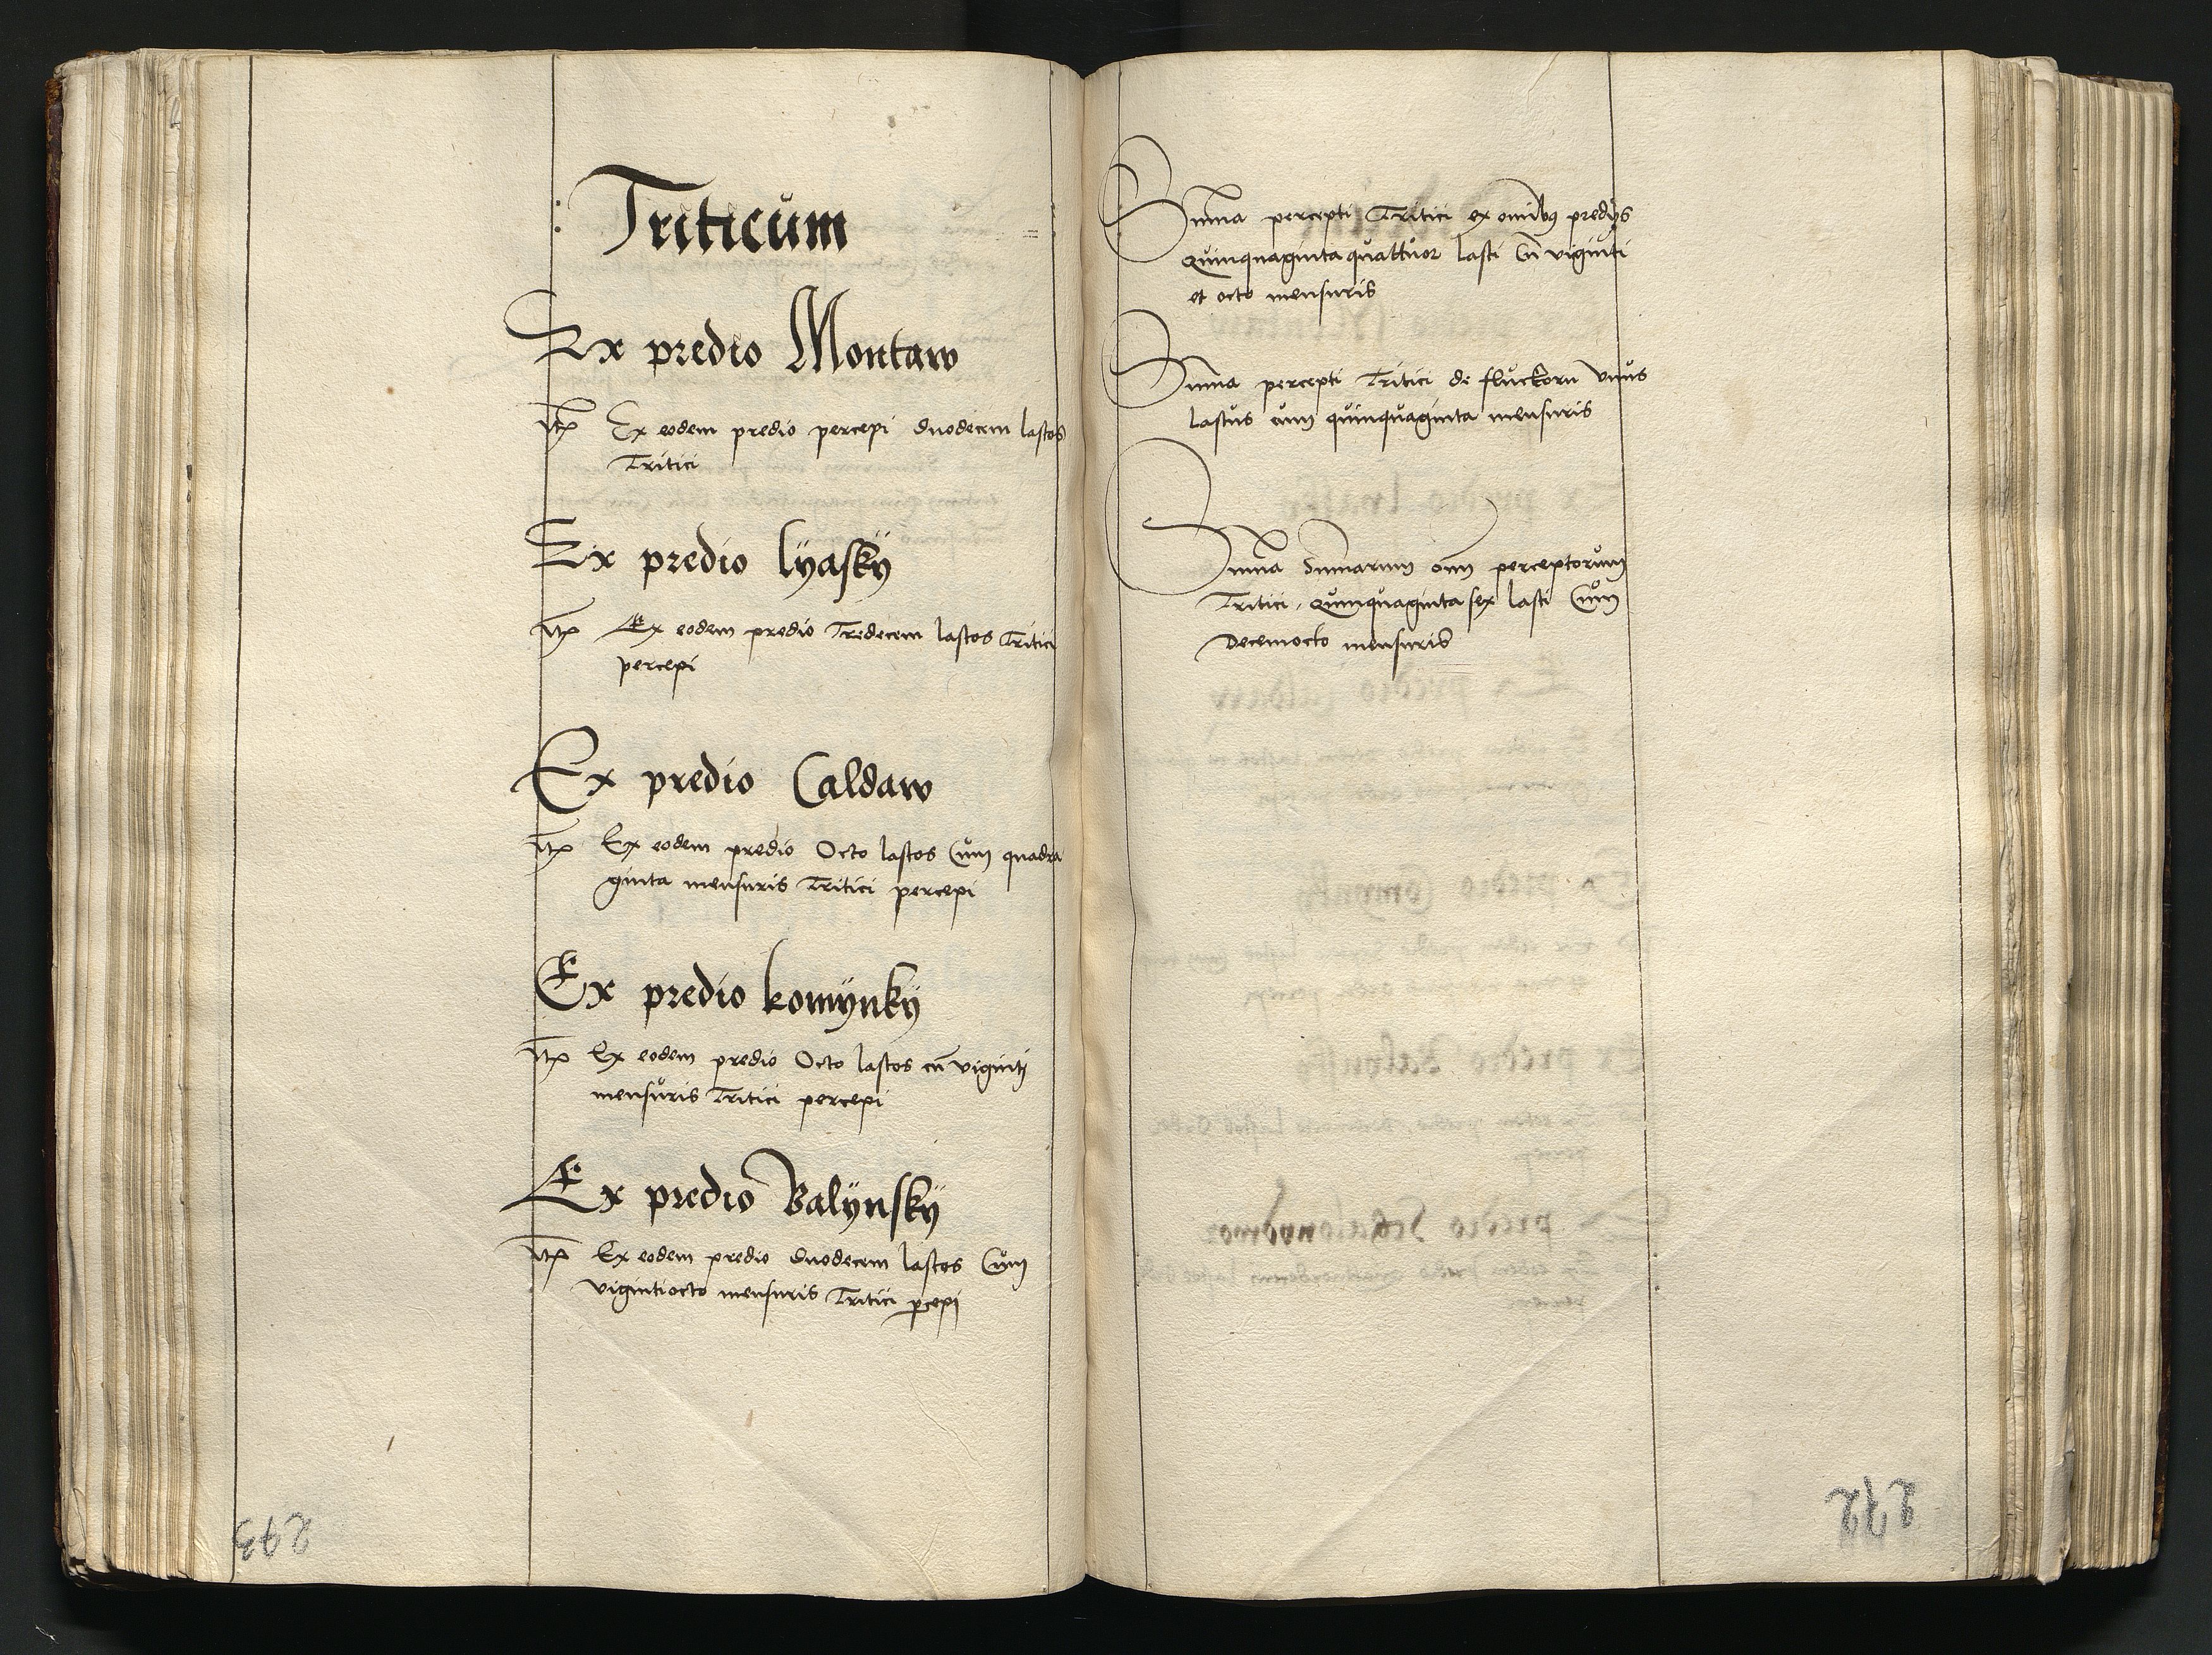 Triticum
Ex predio Montaw
Itē Ex eodem predio percepi duodecem lastos
Tritici
Ex predio lÿaskÿ
Itē Ex eodem predio Tredecem lastos Tritici
percepi
Ex predio Caldaw
Itē Ex eodem predio Octo lastos Cum quadra
ginta mensuris Tritici percepi
Ex predio komÿnkÿ
Itē Ex eodem predio Octo lastos cū viginti
mensuris Tritici percepi
Ex predio Balÿnskÿ
Itē Ex eodem predio duodecem lastos Cum
vigintiocto mensuris Tritici ꝑcepi
Sum̄a percepti Tritici ex om̄ibꝫ predÿs
Quinquagintaquattuor lasti Cū viginti
et octo mensuris
Sum̄a percepti Tritici de fluckorn vnus
lastus cum quinquaginta mensuris
Sum̄a Sum̄arum om̄ perceptorum
Tritici, Quinquagintasex lasti Cum
Decemocto mensuris
273
272